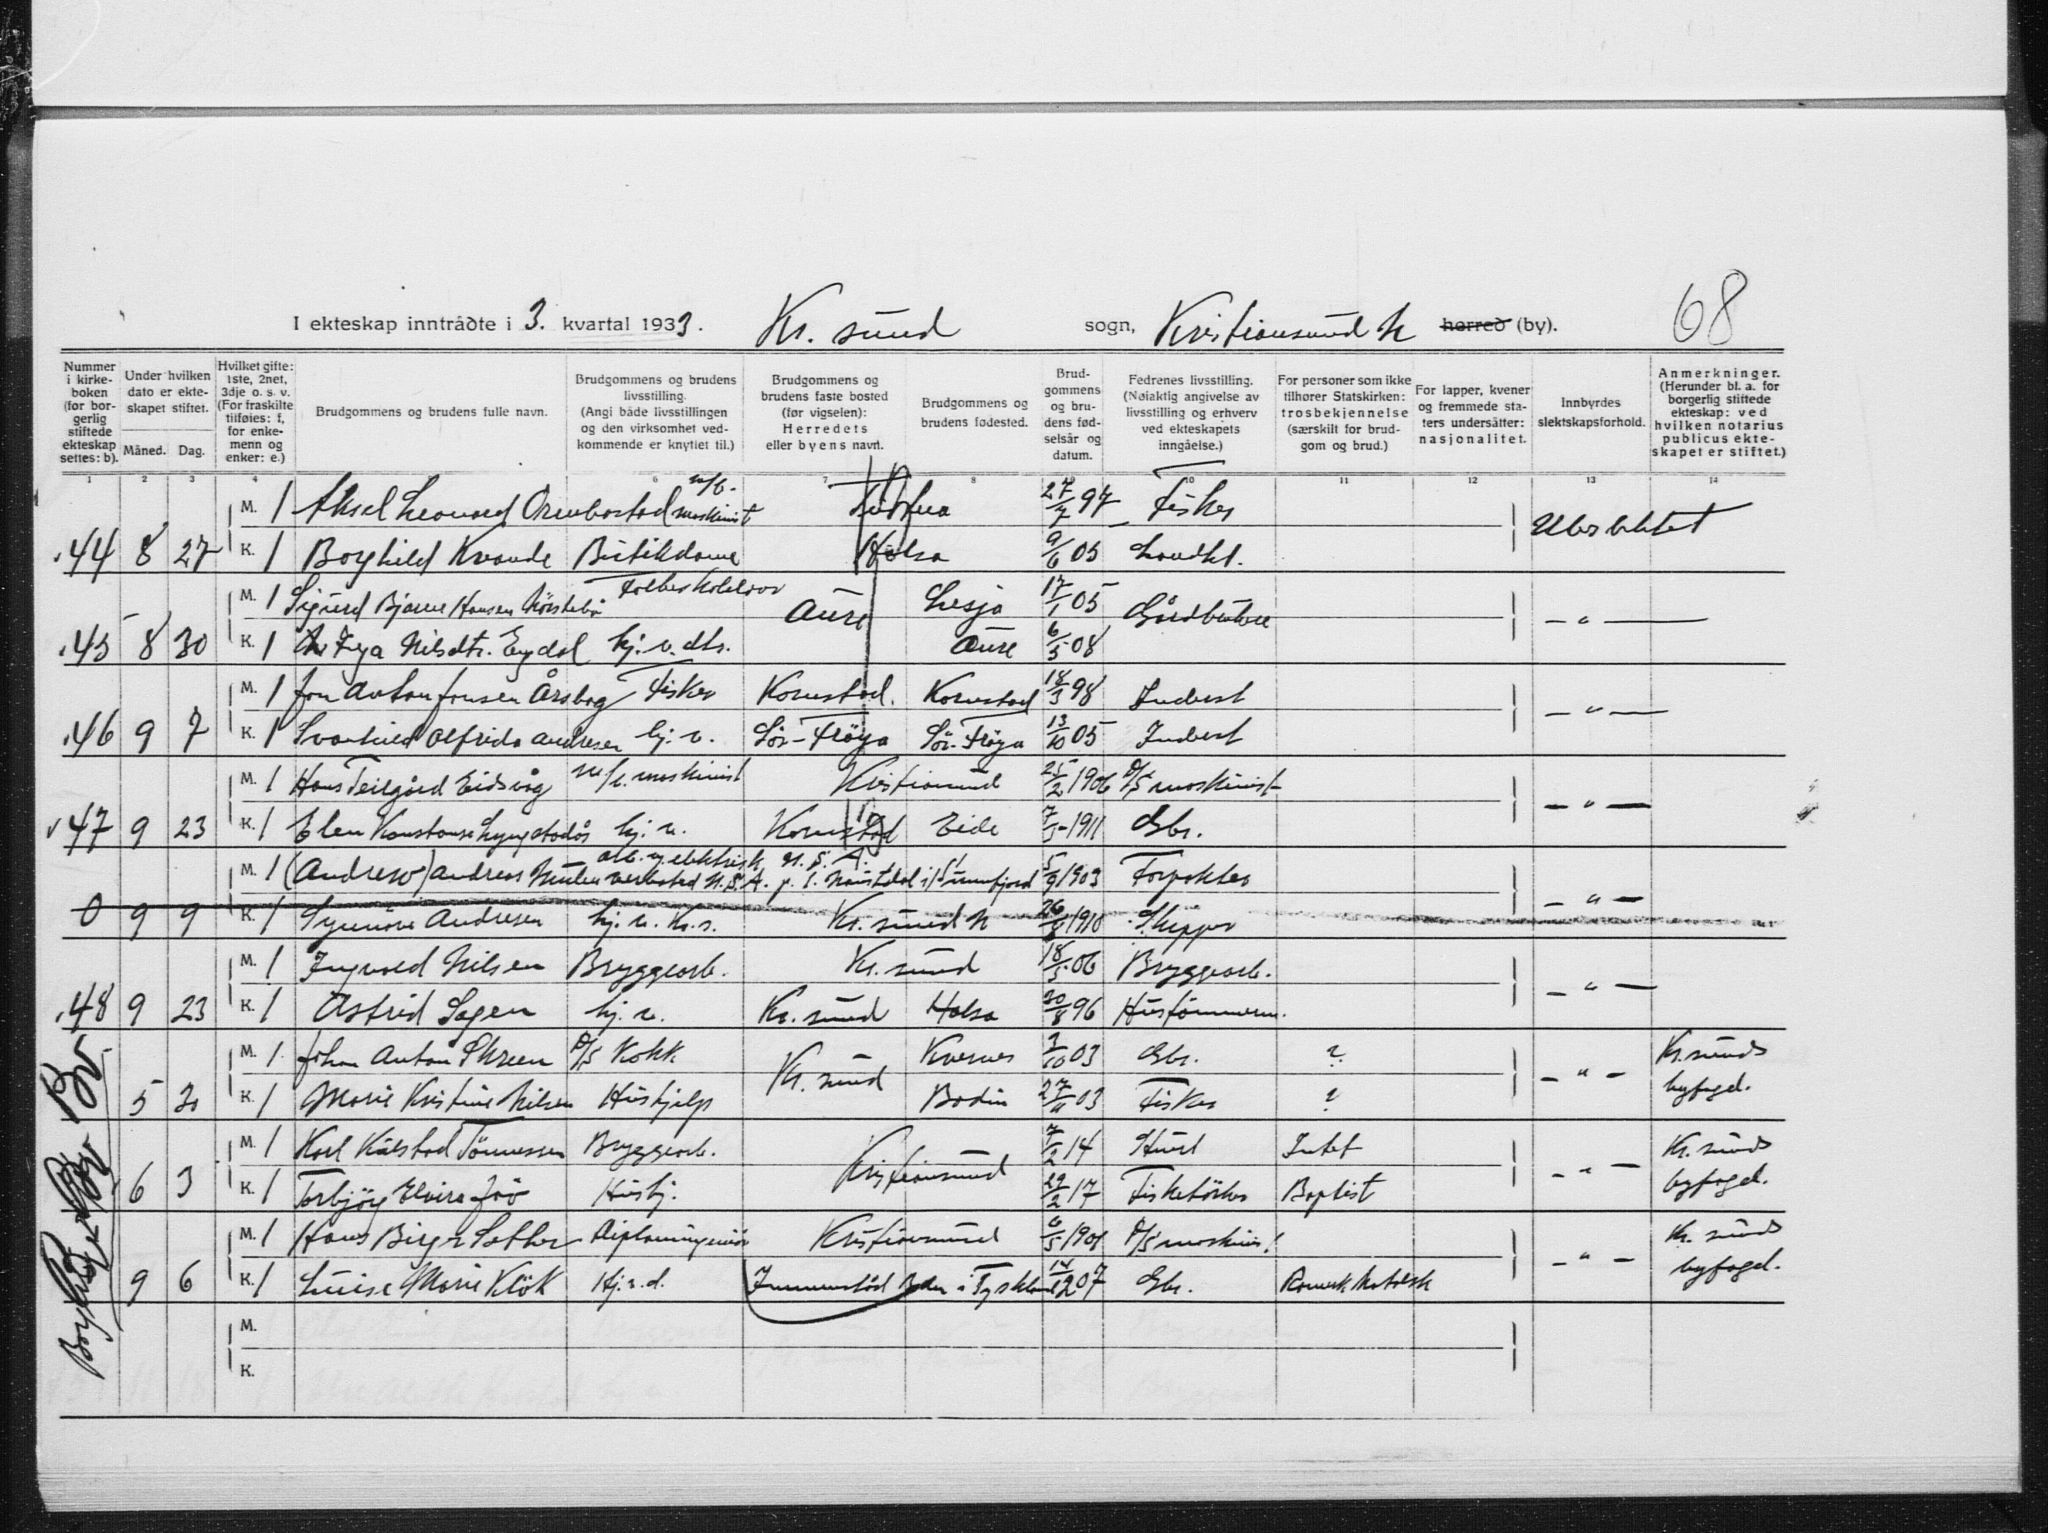 68
I ekteskap inntrådte i 3. kvartal 1933. Kr. sund sogn, Kristiansund N herred (by).
Nummer i kirkeboken (for borgerlig stiftede ekteskap settes: b).
Under hvilken dato er ekteskapet stiftet.
Måned. Dag.
Hvilket gifte: 1ste, 2net, 3dje o. s. v. (For fraskilte tilføies: f, for enkemenn og enker: e.)
Brudgommens og brudens fulle navn.
Brudgommens og brudens livsstilling. (Angi både livsstillingen og den virksomhet vedkommende er knyttet til.)
Brudgommens og brudens faste bosted (før vigselen): Herredets eller byens navn.
Brudgommens og brudens fødested.
Brudgommens og brudens fødselsår og datum.
Fedrenes livsstilling. (Nøiaktig angivelse av livsstilling og erhverv ved ekteskapets inngåelse.)
For personer som ikke tilhører Statskirken: trosbekjennelse (særskilt for brudgom og brud.)
For lapper, kvener og fremmede staters undersåtter: nasjonalitet.
Innbyrdes slektskapsforhold.
Anmerkninger. (Herunder bl. a. for borgerlig stiftede ekteskap: ved hvilken notarius publicus ekteskapet er stiftet.)
1 2 3 4 6 7 8 10 11 12 13 14
M. 1 Aksel Leonard m/b. maskinist 27/7 97 Fisker
44 8 27 K. 1 Borghild Kvande Butikdame Halsa 9/6 05 Landh. Ubeslektet
M. 1 Sigurd Bjarne Hansen Aure Lesja 17/1 05 Gårdbruker
45 8 30 K. 1 Inga Nilsdtr. Eydal hj. v. dtr. Aure 6/5 08 - " -
M. 1 Jon Anton Jonsen Årsbog Fisker Kornstad. Kornstad 18/3 98 Inderst
46 9 7 K. 1 Svanhild Alfrida Andresen hj. v. Sør-Frøya Sør-Frøya 13/10 05 Inderst - " -
M. 1 Hans Teilgård Eidsvåg m/k. maskinist Kristiansund 25/2 1906 D/S maskinist
47 9 23 K. 1 Elen Konstanse Lyngstadås hj. v. Kornstad Eide 7/5 1911 Gbr. - " -
M. 1 (Andrew) Andreas arb. v. elektrisk verksted U.S.A. U.S.A. p. t. Naustdal i Sunnfjord 5/9 1903 Forpakter
0 9 9 K. 1 Synnøve Andresen hj. v. Kr.s. Kr. sund N 1910 Skipper - " -
M. 1 Ingvald Nilsen Bryggearb. Kr. sund 18/5 06 Bryggearb.
48 9 23 K. 1 Astrid Sagen hj. v. Kr. sund Halsa 30/8 96 Hustømmerm. - " -
M. 1 Johan Anton Skreen D/S Kokk Kr. sund Kvernes 3/10 03 Gbr. ? Kr. sunds
5 30 K. 1 Marie Kristine Nilsen Hushjelp Bodin 27/11 03 Fisker ? - " - byfogd.
M. 1 Karl Kulstad Tønnessen Bryggearb. Kristiansund 7/2 14 Intet Kr. sunds
6 3 K. 1 Torbjøg Elvira Husj. 29/2 17 Fisketørker Baptist - " - byfogd.
M. 1 Hans Birger Sather Diplomingeniør Kristiansund 6/5 1901 D/S maskinist Kr. sunds
9 6 K. 1 Luise Marie Klök Hj. v. d. Immenstad Baden i Tyskland 14/12 07 Gbr. Romersk katolsk - " - byfogd.
M.
K.